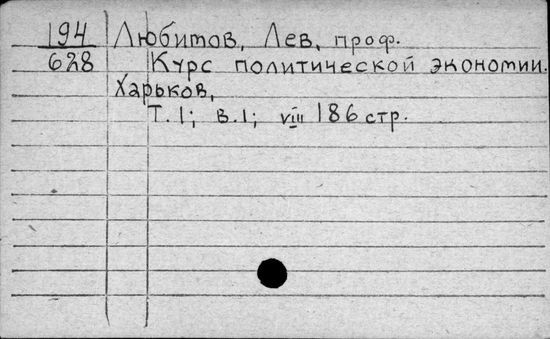 194 Любитов, Лев, проф.
628 Курс политической экономии.
Харьков,
Т. 1; в. 1; VIII 186 стр.